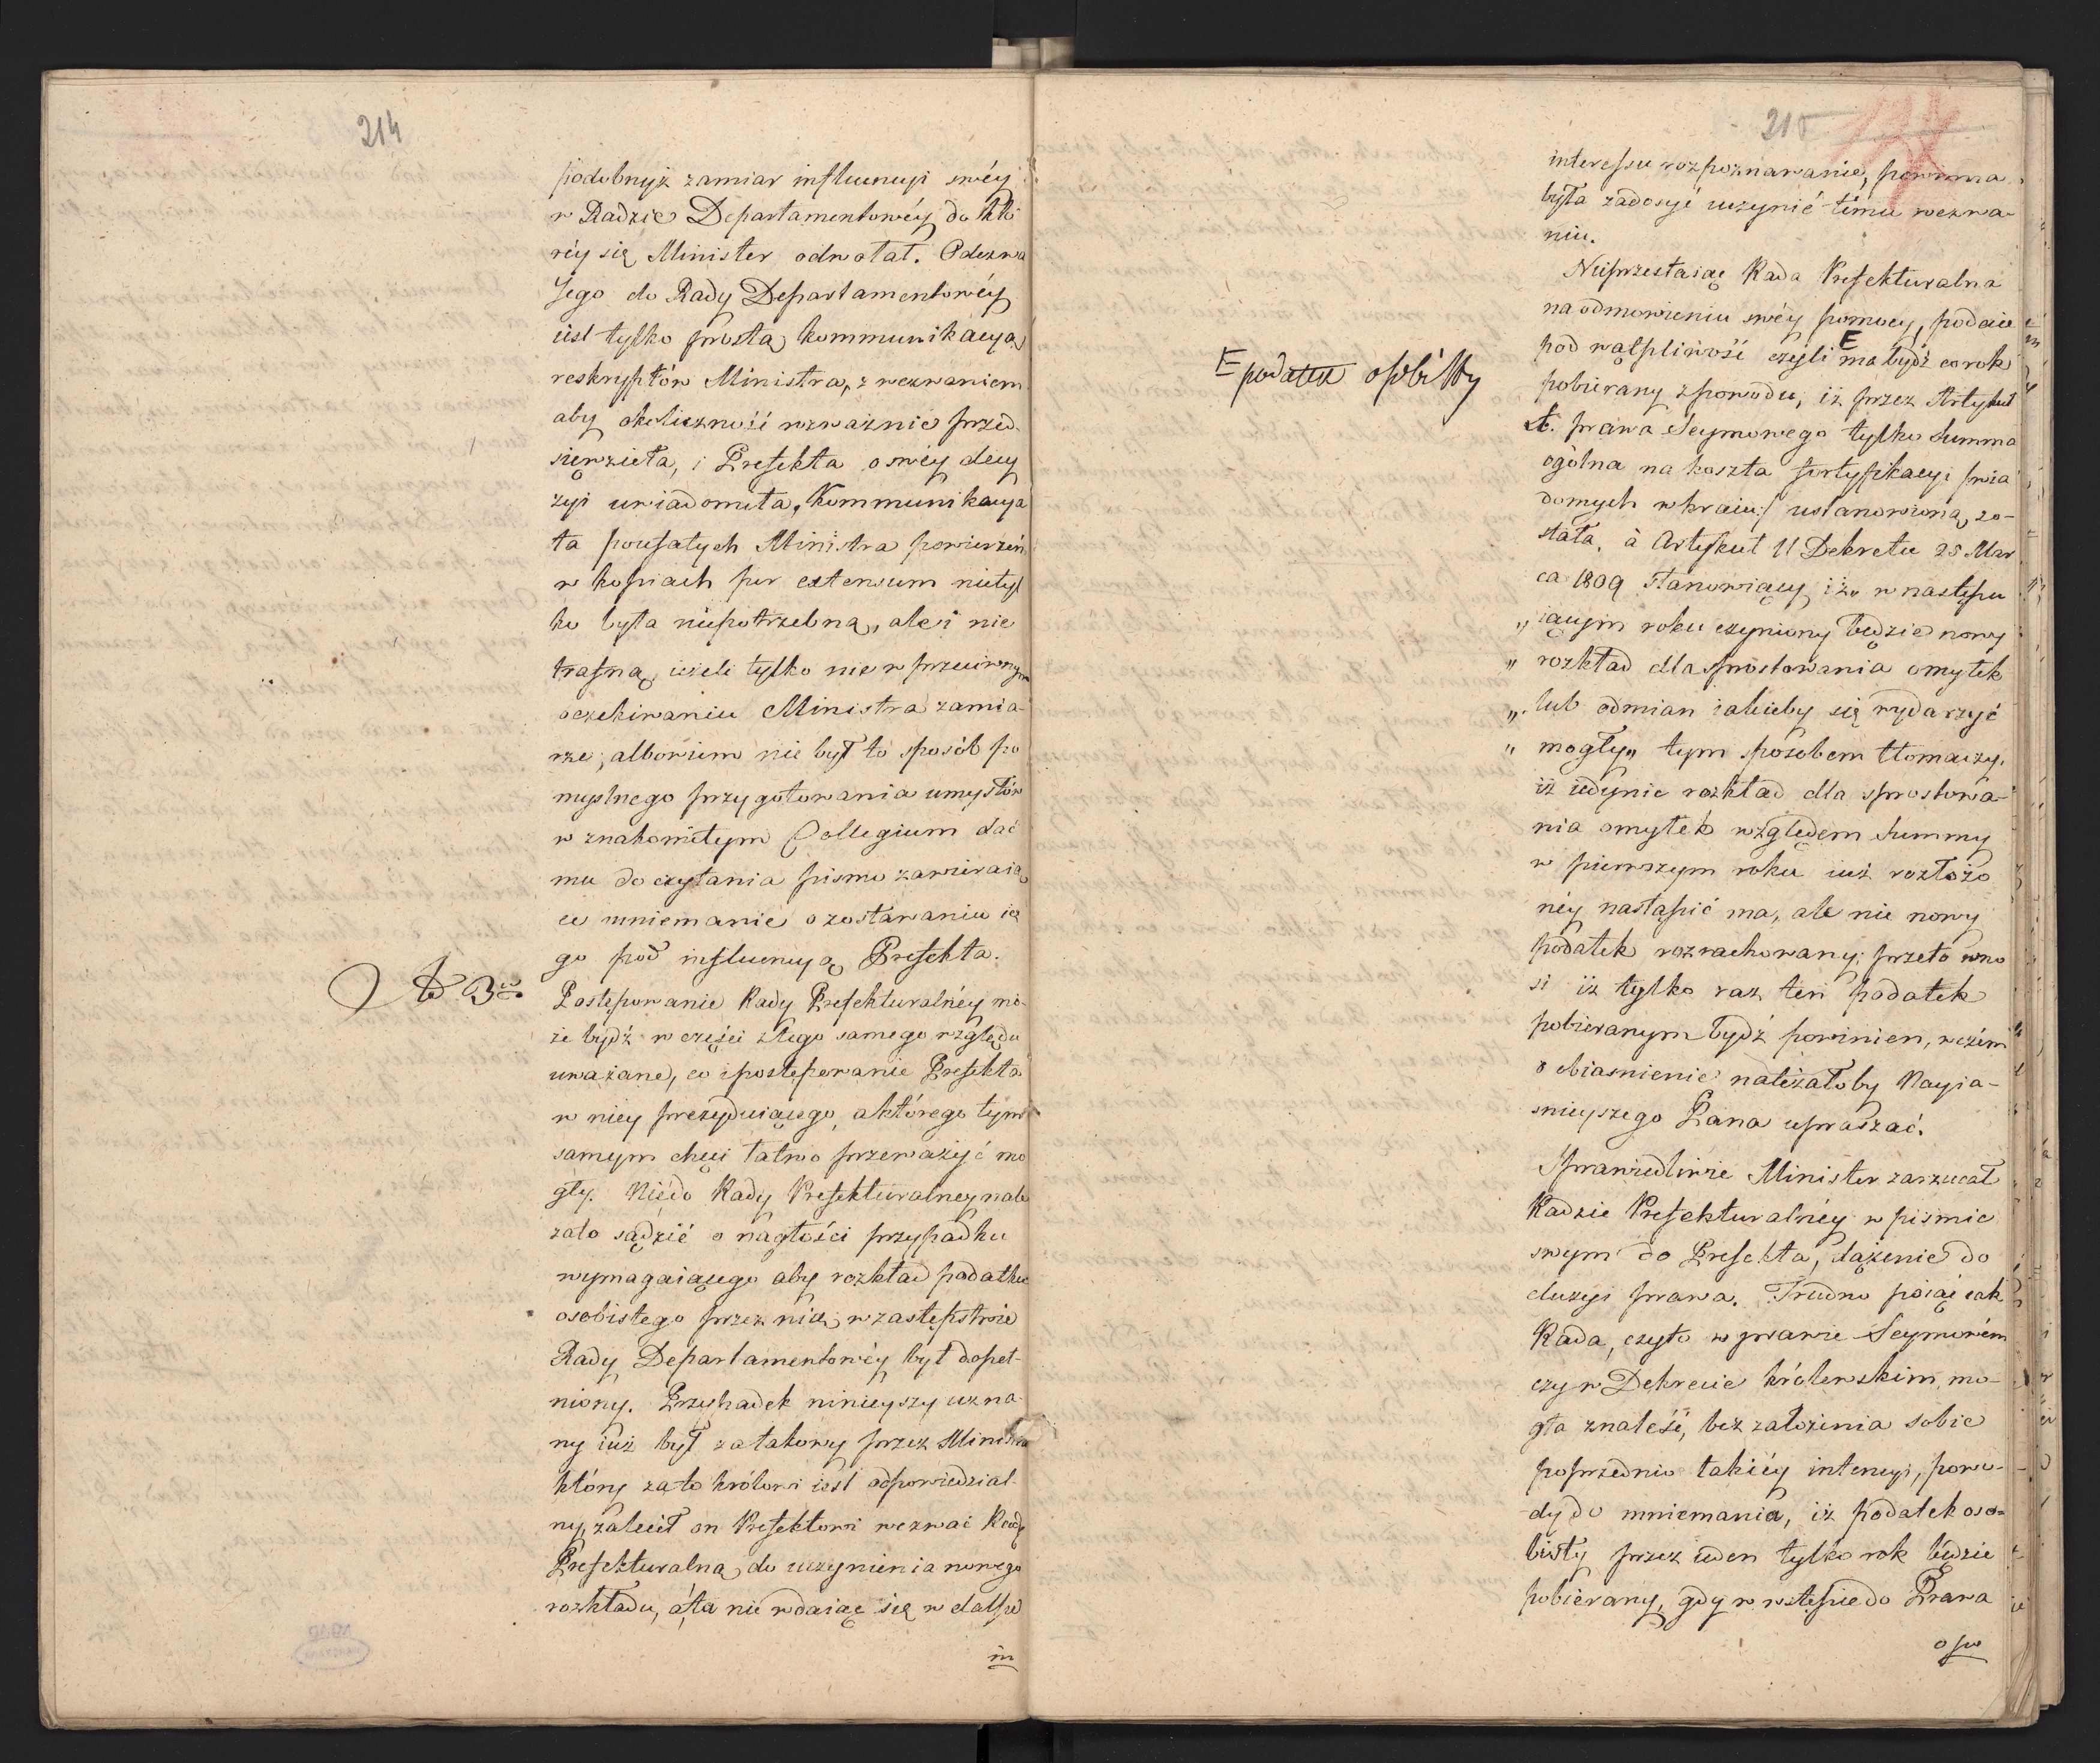 214
podobnyż zamiar influencyi swéy
w Radzie Departamentowéy do któ
réy się Minister odwołał. Odezwa
Jego do Rady Departamentowéy
iest tylko prostą kommunikacyą
reskryptów Ministra, z wezwaniem
aby okoliczność rozważnie przed-
sięwzięła, i Prefekta o swéy decy
zyi uwiadomiła, Kommunikacya
ta poufałych Ministra powierzeń
w kopiach per extensum nietyl
ko była niepotrzebną, ale i nie
trafną, ieżeli tylko nie w przeciwnym
oczekiwaniu Ministra zamia-
rze; albowiem nie był to sposób po
myslnego przygotowania umysłów
w znakomitym Collegium dać
mu do czytania pismo zawieraią
ce mniemanie o zostawaniu ie
go pod influencyą Prefekta.
Ad 3um
Postępowanie Rady Prefekturalnéy mo-
że bydź w części z tego samego względu
uważane, co i postępowanie Prefekta
w niey prezyduiącego, a którego tym
samym chęci łatwo przeważyć mo
gły. Nie do Rady Prefekturalney nale
żało sądzić o nagłości przypadku
wymagaiącego aby rozkład podatku
osobistego przez nią w zastępstwie
Rady Departamentowéy był dopeł-
niony. Przypadek ninieyszy uzna-
ny iuż był za takowy przez Ministra
który za to królowi iest odpowiedzial-
ny, zalecił on Prefektowi wezwać Radę
Prefekturalną do uczynienia nowego
rozkładu, a ta nie wdaiąc się w dalsze
in
215
interessu rozpoznawanie, powinna
była zadosyć uczynić temu wezwa-
niu.
Nieprzestaiąc Rada Prefekturalna
na odmowieniu swéy pomocy, podaie
pod wątpliwość czyli E ma bydź co rok
E podatek osobisty
pobierany z powodu, iż przez Artykuł
prawa Seymowego tylko Summa
ogólna na koszta fortyfikacyi /wia
domych w kraiu:/ ustanowioną zo-
stała, à Artykuł 11 Dekretu 25 Mar
ca 1809 stanowiący, iż „ w nastepu
„ iącym roku czyniony będzie nowy
„ rozkład dla sprostowania omyłek
„ lub odmian iakieby się wydarzyć
„ mogły „ tym sposobem tłomaczy,
iż iedynie rozkład dla sprostowa-
nia omyłek względem Summy
w pierwszym roku iuż rozłożo
néy nastąpić ma, ale nie nowy
podatek rozrachowany; przeto wno
si iż tylko raz ten podatek
pobieranym bydź powinien, w czém
o obiasnienie należałoby Nayia-
snieyszego Pana upraszać.
Sprawiedliwie Minister zarzucał
Radzie Prefekturalnéy w pismie
swym do Prefekta, dążenie do
eluzyi prawa. Trudno poiąć iak
Rada, czyto w prawie Seymowém
czy w Dekrecie królewskim, mo-
gła znaleść, bez założenia sobie
poprzednio takiéy intencyi, powo-
dy do mniemania, iż podatek oso-
bisty przez ieden tylko rok będzie
pobierany, gdy w wstępie do Prawa